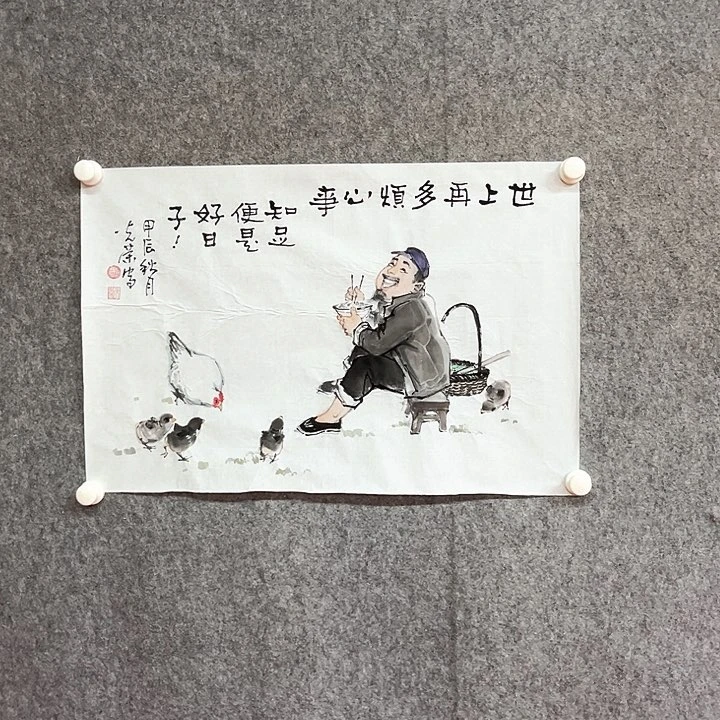 世上再多煩心事
知足
便是
好日
子！
甲辰秋月
光荣写